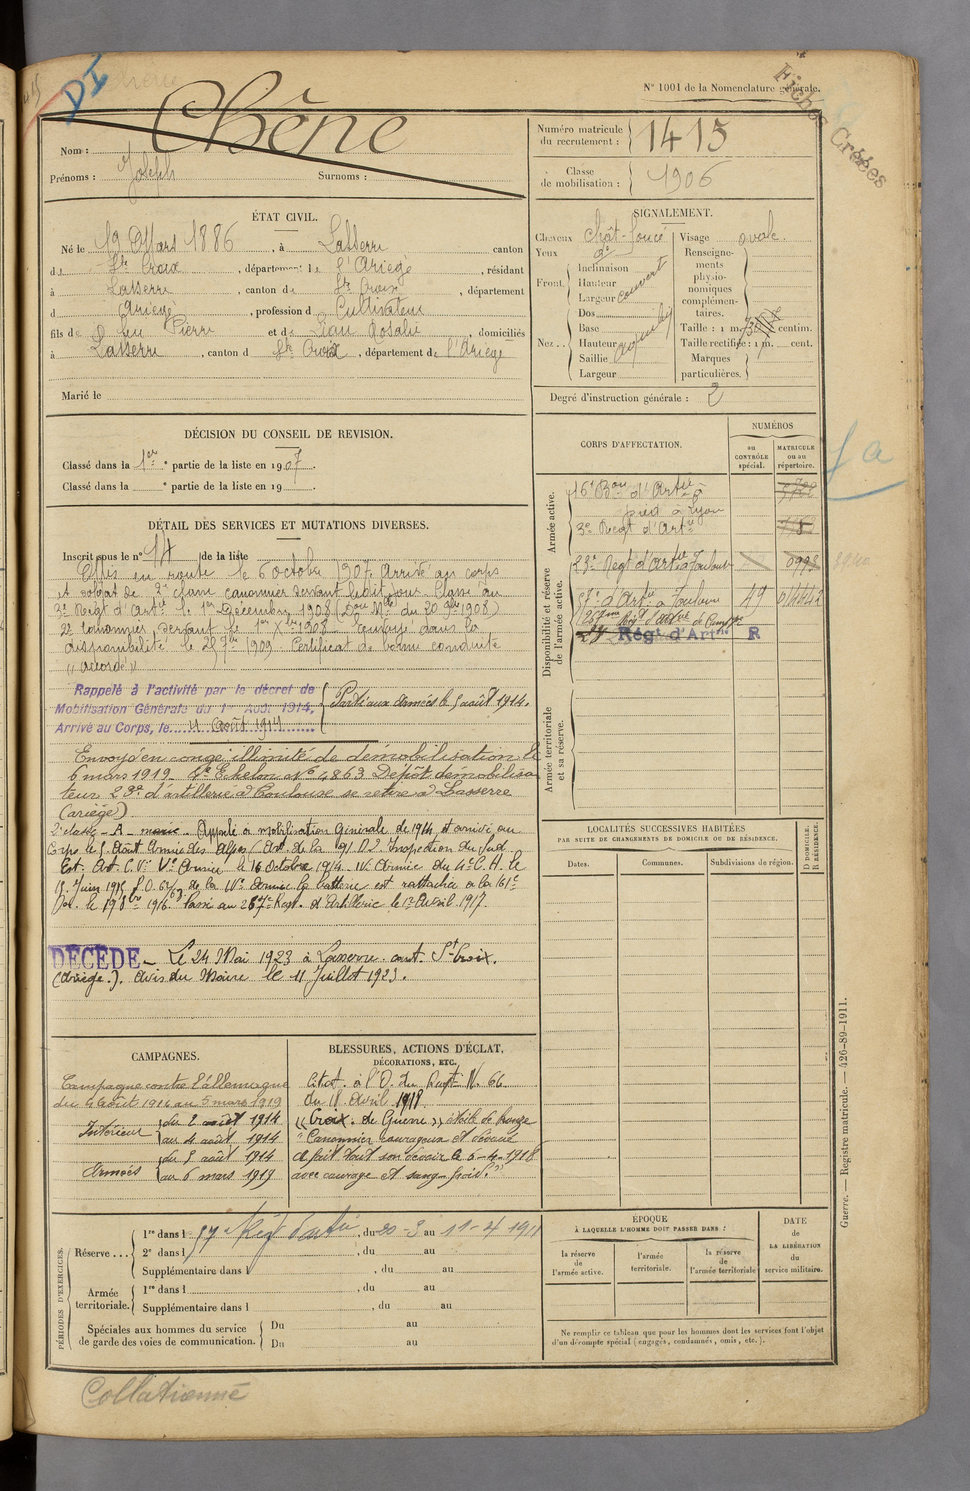 DI
N° 1001 de la Nomenclature générale.
Fiches Créées
Nom : Chêne
Prénoms : Joseph Surnoms :
Numéro matricule du recrutement : 1415
Classe de mobilisation : 1906
ÉTAT CIVIL.
Né le 19 Mars 1886, à Lasserre canton
de Ste Croix, département de l'Ariège, résidant
à Lasserre, canton de Ste Croix, département
d Ariège, profession de Cultivateur
fils de feu Pierre et de Rosalie domiciliés
à Lasserre, canton d Ste Croix, département de l'Ariège
Marié le
SIGNALEMENT.
Cheveux chât-foncé
Yeux do
Front Inclinaison
Hauteur
Largeur couvert
Nez Dos
Base
Hauteur
Saillie
Largeur
Visage ovale
Renseignements physionomiques complémentaires.
Taille : 1 m. centim.
Taille rectifiée : 1 m. cent.
Marques particulières.
Degré d'instruction générale : 2
DÉCISION DU CONSEIL DE REVISION.
Classé dans la 1re partie de la liste en 1907.
Classé dans la e partie de la liste en 19
DÉTAIL DES SERVICES ET MUTATIONS DIVERSES.
Inscrit sous le n° 14 de la liste
Mis en route le 6 octobre 1907. Arrivé au corps
et soldat de 2e classe canonnier servant ledit jour. Passé au
3e Régt d'Artie le 1er Décembre 1908 (du 20 9bre 1908)
2e Canonnier servant le 1er Xbre 1908. Envoyé dans la
disponibilité le 25 7bre 1909. Certificat de bonne conduite
"accordé"
Rappelé à l'activité par le décret de
Mobilisation Générale du 1er Août 1914,
Arrivé au Corps, le 4 août 1914
Parti aux armées le 5 août 1914.
Envoyé en congé illimité de démobilisation le
6 mars 1919. Echelon N° 4863 Dépôt démobilisa
teur 23e d'artillerie à Toulouse se retire à Lasserre
(ariège)
2e classe - Appelé à mobilisation Générale de 1914 et arrivé au
Corps le Août Armée des Alpes Inspection du Sud
Est. le 16 Octobre 1914. IVe Armée du 4e C.A. le
15 Juin 1915 de la IVe Armée la batterie est rattachée à la 161e
le 1916. Passé au 267e Regt d'Artillerie le 1er Avril 1917.
DÉCÉDÉ - Le 24 Mai 1923 à Lasserre cant. Ste Croix.
(Ariège.). Avis du Maire le 11 Juillet 1923.
CORPS D'AFFECTATION.
NUMÉROS
au CONTRÔLE spécial.
MATRICULE ou au répertoire.
Armée active.
16e Bon d'Artie à
pied à Lyon
3e Régt d'Artie
Disponibilité et réserve de l'armée active.
23e Régt d'Artie à Toulouse
57e d'Artie à Toulouse 49
267me Régt d'artie de Campne
Régt d'Artrie R
Armée territoriale et sa réserve.
LOCALITÉS SUCCESSIVES HABITÉES
PAR SUITE DE CHANGEMENTS DE DOMICILE OU DE RÉSIDENCE.
Dates. Communes. Subdivisions de région.
D DOMICILE. R RÉSIDENCE.
CAMPAGNES.
Campagne contre l'allemagne
du 4 août 1914 au 5 mars 1919
Intérieur du 2 août 1914
au 4 août 1914
Armées du 5 août 1914
au 6 mars 1919
BLESSURES, ACTIONS D'ÉCLAT,
DÉCORATIONS, ETC.
Citat. à l'O. du Regt N. 66
du 18 Avril 1918
"Croix de Guerre" étoile de bronze
"Canonnier courageux et dévoué
a fait tout son devoir le 5-4-1918
avec courage et sang-froid."
PÉRIODES D'EXERCICES.
Réserve... 1re dans l 57e Régt d'artie, du 20-3 au 11-4 1911
2e dans l , du au
Supplémentaire dans l , du au
Armée territoriale. 1re dans l , du au
Supplémentaire dans l , du au
Spéciales aux hommes du service de garde des voies de communication. Du au
Du au
ÉPOQUE
À LAQUELLE L'HOMME DOIT PASSER DANS :
la réserve de l'armée active.
l'armée territoriale.
la réserve de l'armée territoriale
DATE de LA LIBÉRATION du service militaire.
Ne remplir ce tableau que pour les hommes dont les services font l'objet
d'un décompte spécial (engagés, condamnés, omis, etc.).
Guerre. — Registre matricule. — 426-89-1911.
Collationné